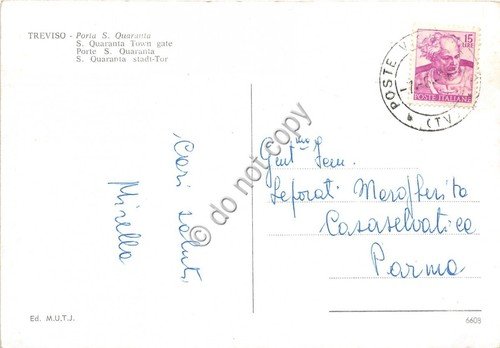 TREVISO - Porta S. Quaranta
S. Quaranta Town gate
Porte S. Quaranta
S. Quaranta stadt-Tor
15
LIRE
POSTE ITALIANE
POSTE V
(TV
Cari saluti
Mirella
Gent.ma Sem.
Leporat. Margherita
Casaselvatica
Parma
do not copy
Ed. M.U.T.J.
6608